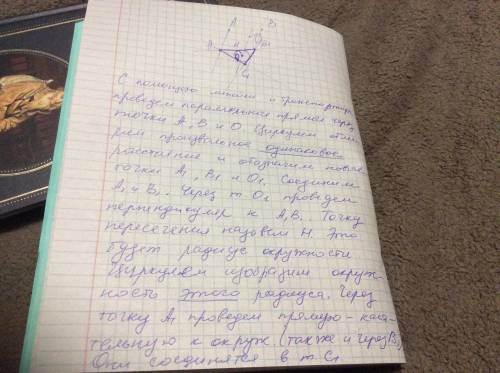 A B
A₁ H B₁
O₁
C₁
С помощью линейки и транспортира
проведем параллельные прямые через
точки A, B и O. Циркулем отме
рем произвольное одинаковое
расстояние и обозначим новые
точки A₁, B₁ и O₁. Соединим
A₁ и B₁. Через т. O₁ проведем
перпендикуляр к A₁B₁. Точку
пересечения назовем H. Это
будет радиус окружности
Циркулем изобразим окруж-
ность этого радиуса. Через
точку A₁ проведем прямую - каса
тельную к окруж. (также и через B₁)
Они соединятся в т. C₁